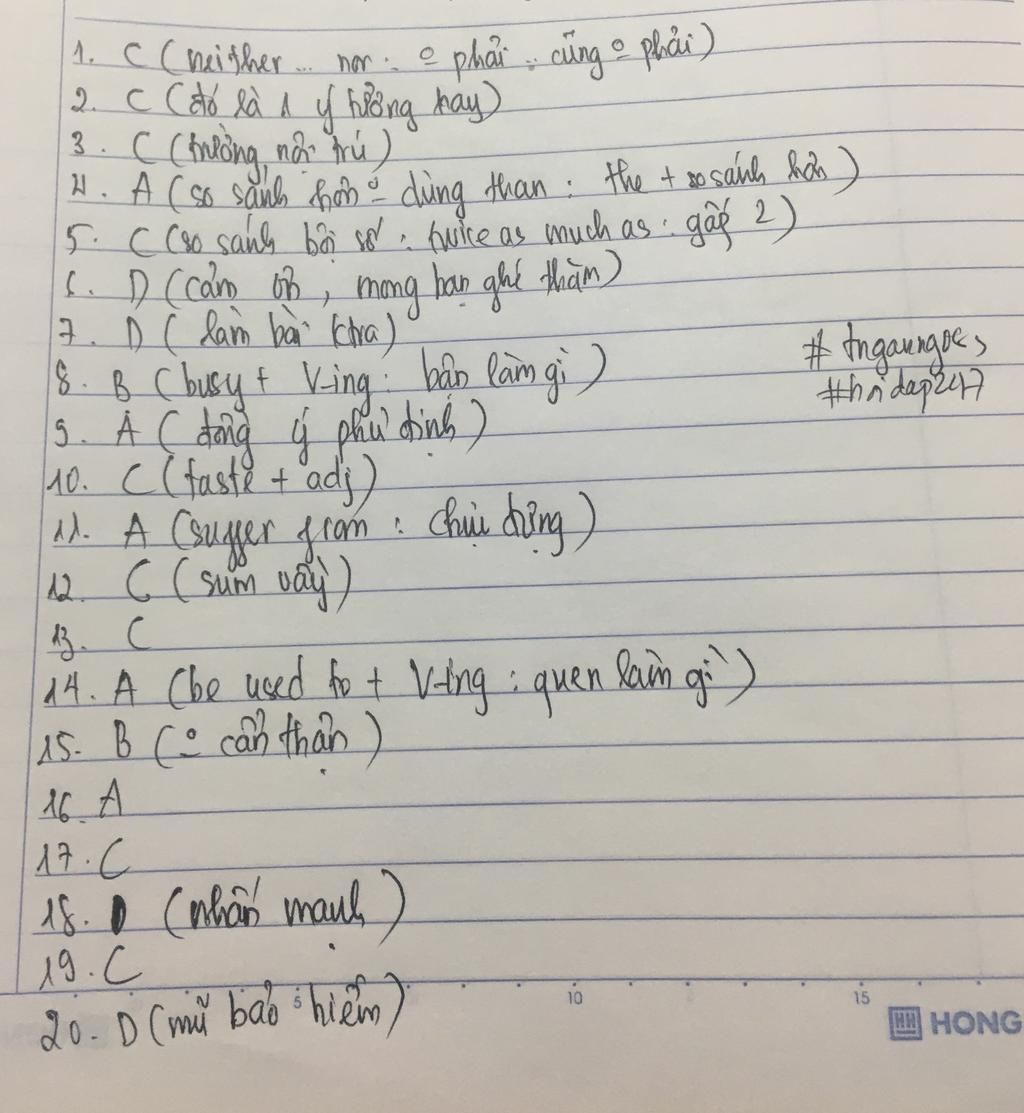 1. C (neither ... nor : o phải .. cũng o phải)
2. C (đó là 1 ý tưởng hay)
3. C (trường nội trú)
4. A (so sánh hơn o dùng than : the + so sánh hơn)
5. C (so sánh bội số : twice as much as : gấp 2)
6. D (cảm ơn, mong bạn ghé thăm)
7. D (làm bài ktra)
# tngaungoc
8. B (busy + V-ing : bận làm gì)
#hoidap247
9. A (đồng ý phủ định)
10. C (taste + adj)
11. A (suffer from : chịu đựng)
12. C (sum vầy)
13. C
14. A (be used to + V-ing : quen làm gì)
15. B (o cẩn thận)
16. A
17. C
18. D (nhấn mạnh)
19. C
5 10 15
20. D (mũ bảo hiểm)
HH HONG